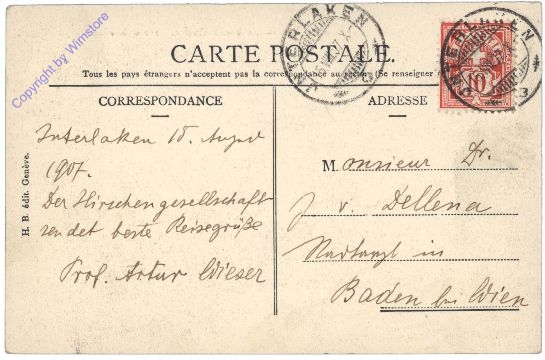 Copyright by Wimstore
CARTE POSTALE.
Tous les pays étrangers n'acceptent pas la correspondance au recto. (Se renseigner
INTERLAKEN
INTERLAKEN
10
CORRESPONDANCE
ADRESSE
H. B. édit. Genève.
Interlaken 18. August
1907.
Der Hirschengesellschaft
sendet beste Reisegrüße
Prof. Artur Wieser
Monsieur Dr.
J v. Dellena
Stadtarzt in
Baden bei Wien